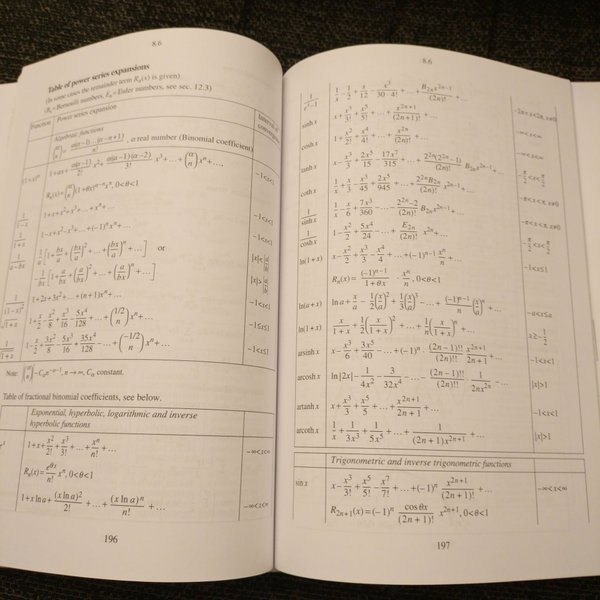 8.6
Table of power series expansions
(In some cases the remainder term Rₙ(x) is given)
(Bₙ=Bernoulli numbers, Eₙ=Euler numbers, see sec. 12.3)
Function Power series expansion Interval of convergence
Algebraic functions
(α n) = α(α−1)…(α−n+1)/n!, α real number (Binomial coefficient)
(1+x)^α 1+αx+α(α−1)/2! x²+α(α−1)(α−2)/3! x³+…+(α n)xⁿ+… −1<x<1
Rₙ(x)=(α n)(1+θx)^(α−n) xⁿ, 0<θ<1
1/(1−x) 1+x+x²+x³+…+xⁿ+… −1<x<1
1/(1+x) 1−x+x²−x³+…+(−1)ⁿxⁿ+… −1<x<1
1/(a−bx) 1/a [1+bx/a+(bx/a)²+…+(bx/a)ⁿ+…] or |x|<|a/b|
−1/bx [1+a/bx+(a/bx)²+…+(a/bx)ⁿ+…] |x|>|a/b|
1/(1−x)² 1+2x+3x²+…+(n+1)xⁿ+… −1<x<1
√(1+x) 1+x/2−x²/8+x³/16−5x⁴/128+…+(1/2 n)xⁿ+… −1≤x≤1
1/√(1+x) 1−x/2+3x²/8−5x³/16+35x⁴/128−…+(−1/2 n)xⁿ+… −1<x≤1
Note: (α n)~C₀n^(−α−1), n→∞, C₀ constant.
Table of fractional binomial coefficients, see below.
Exponential, hyperbolic, logarithmic and inverse
hyperbolic functions
eˣ 1+x+x²/2!+x³/3!+…+xⁿ/n!+… −∞<x<∞
Rₙ(x)=e^(θx)/n! xⁿ, 0<θ<1
1+x ln a+(x ln a)²/2!+…+(x ln a)ⁿ/n!+… −∞<x<∞
196
8.6
1/(eˣ−1) 1/x−1/2+x/12−x³/(30·4!)+…+B₂ₙx²ⁿ⁻¹/(2n)!+… −2π<x<2π, x≠0
sinh x x+x³/3!+x⁵/5!+…+x²ⁿ⁺¹/(2n+1)!+… −∞<x<∞
cosh x 1+x²/2!+x⁴/4!+…+x²ⁿ/(2n)!+… −∞<x<∞
tanh x x−x³/3+2x⁵/15−17x⁷/315+…+2²ⁿ(2²ⁿ−1)/(2n)! B₂ₙx²ⁿ⁻¹+… −π/2<x<π/2
coth x 1/x+x/3−x³/45+2x⁵/945−…+2²ⁿB₂ₙ/(2n)! x²ⁿ⁻¹+… −π<x<π, x≠0
1/sinh x 1/x−x/6+7x³/360−…−(2²ⁿ−2)/(2n)! B₂ₙx²ⁿ⁻¹+… −π<x<π, x≠0
1/cosh x 1−x²/2+5x⁴/24−…+E₂ₙ/(2n)! x²ⁿ+… −π/2<x<π/2
ln(1+x) x−x²/2+x³/3−x⁴/4+…+(−1)ⁿ⁻¹ xⁿ/n+… −1<x≤1
Rₙ(x)=(−1)ⁿ⁻¹/(1+θx) · xⁿ/n, 0<θ<1
ln(a+x) ln a+x/a−1/2(x/a)²+1/3(x/a)³−…+(−1)ⁿ⁻¹/n (x/a)ⁿ+… −a<x≤a
ln(1+x) x/(1+x)+1/2(x/(1+x))²+…+1/n(x/(1+x))ⁿ+… x≥−1/2
arsinh x x−x³/6+3x⁵/40−…+(−1)ⁿ (2n−1)!!/(2n)!! x²ⁿ⁺¹/(2n+1)+… −1<x<1
arcosh x ln|2x|−1/4x²−3/32x⁴−…−(2n−1)!!/(2n)!! · 1/2nx²ⁿ−… |x|>1
artanh x x+x³/3+x⁵/5+…+x²ⁿ⁺¹/(2n+1)+… −1<x<1
arcoth x 1/x+1/3x³+1/5x⁵+…+1/(2n+1)x²ⁿ⁺¹+… |x|>1
Trigonometric and inverse trigonometric functions
sin x x−x³/3!+x⁵/5!−x⁷/7!+…+(−1)ⁿ x²ⁿ⁺¹/(2n+1)!+… −∞<x<∞
R₂ₙ₊₁(x)=(−1)ⁿ cos θx/(2n+1)! x²ⁿ⁺¹, 0<θ<1
197